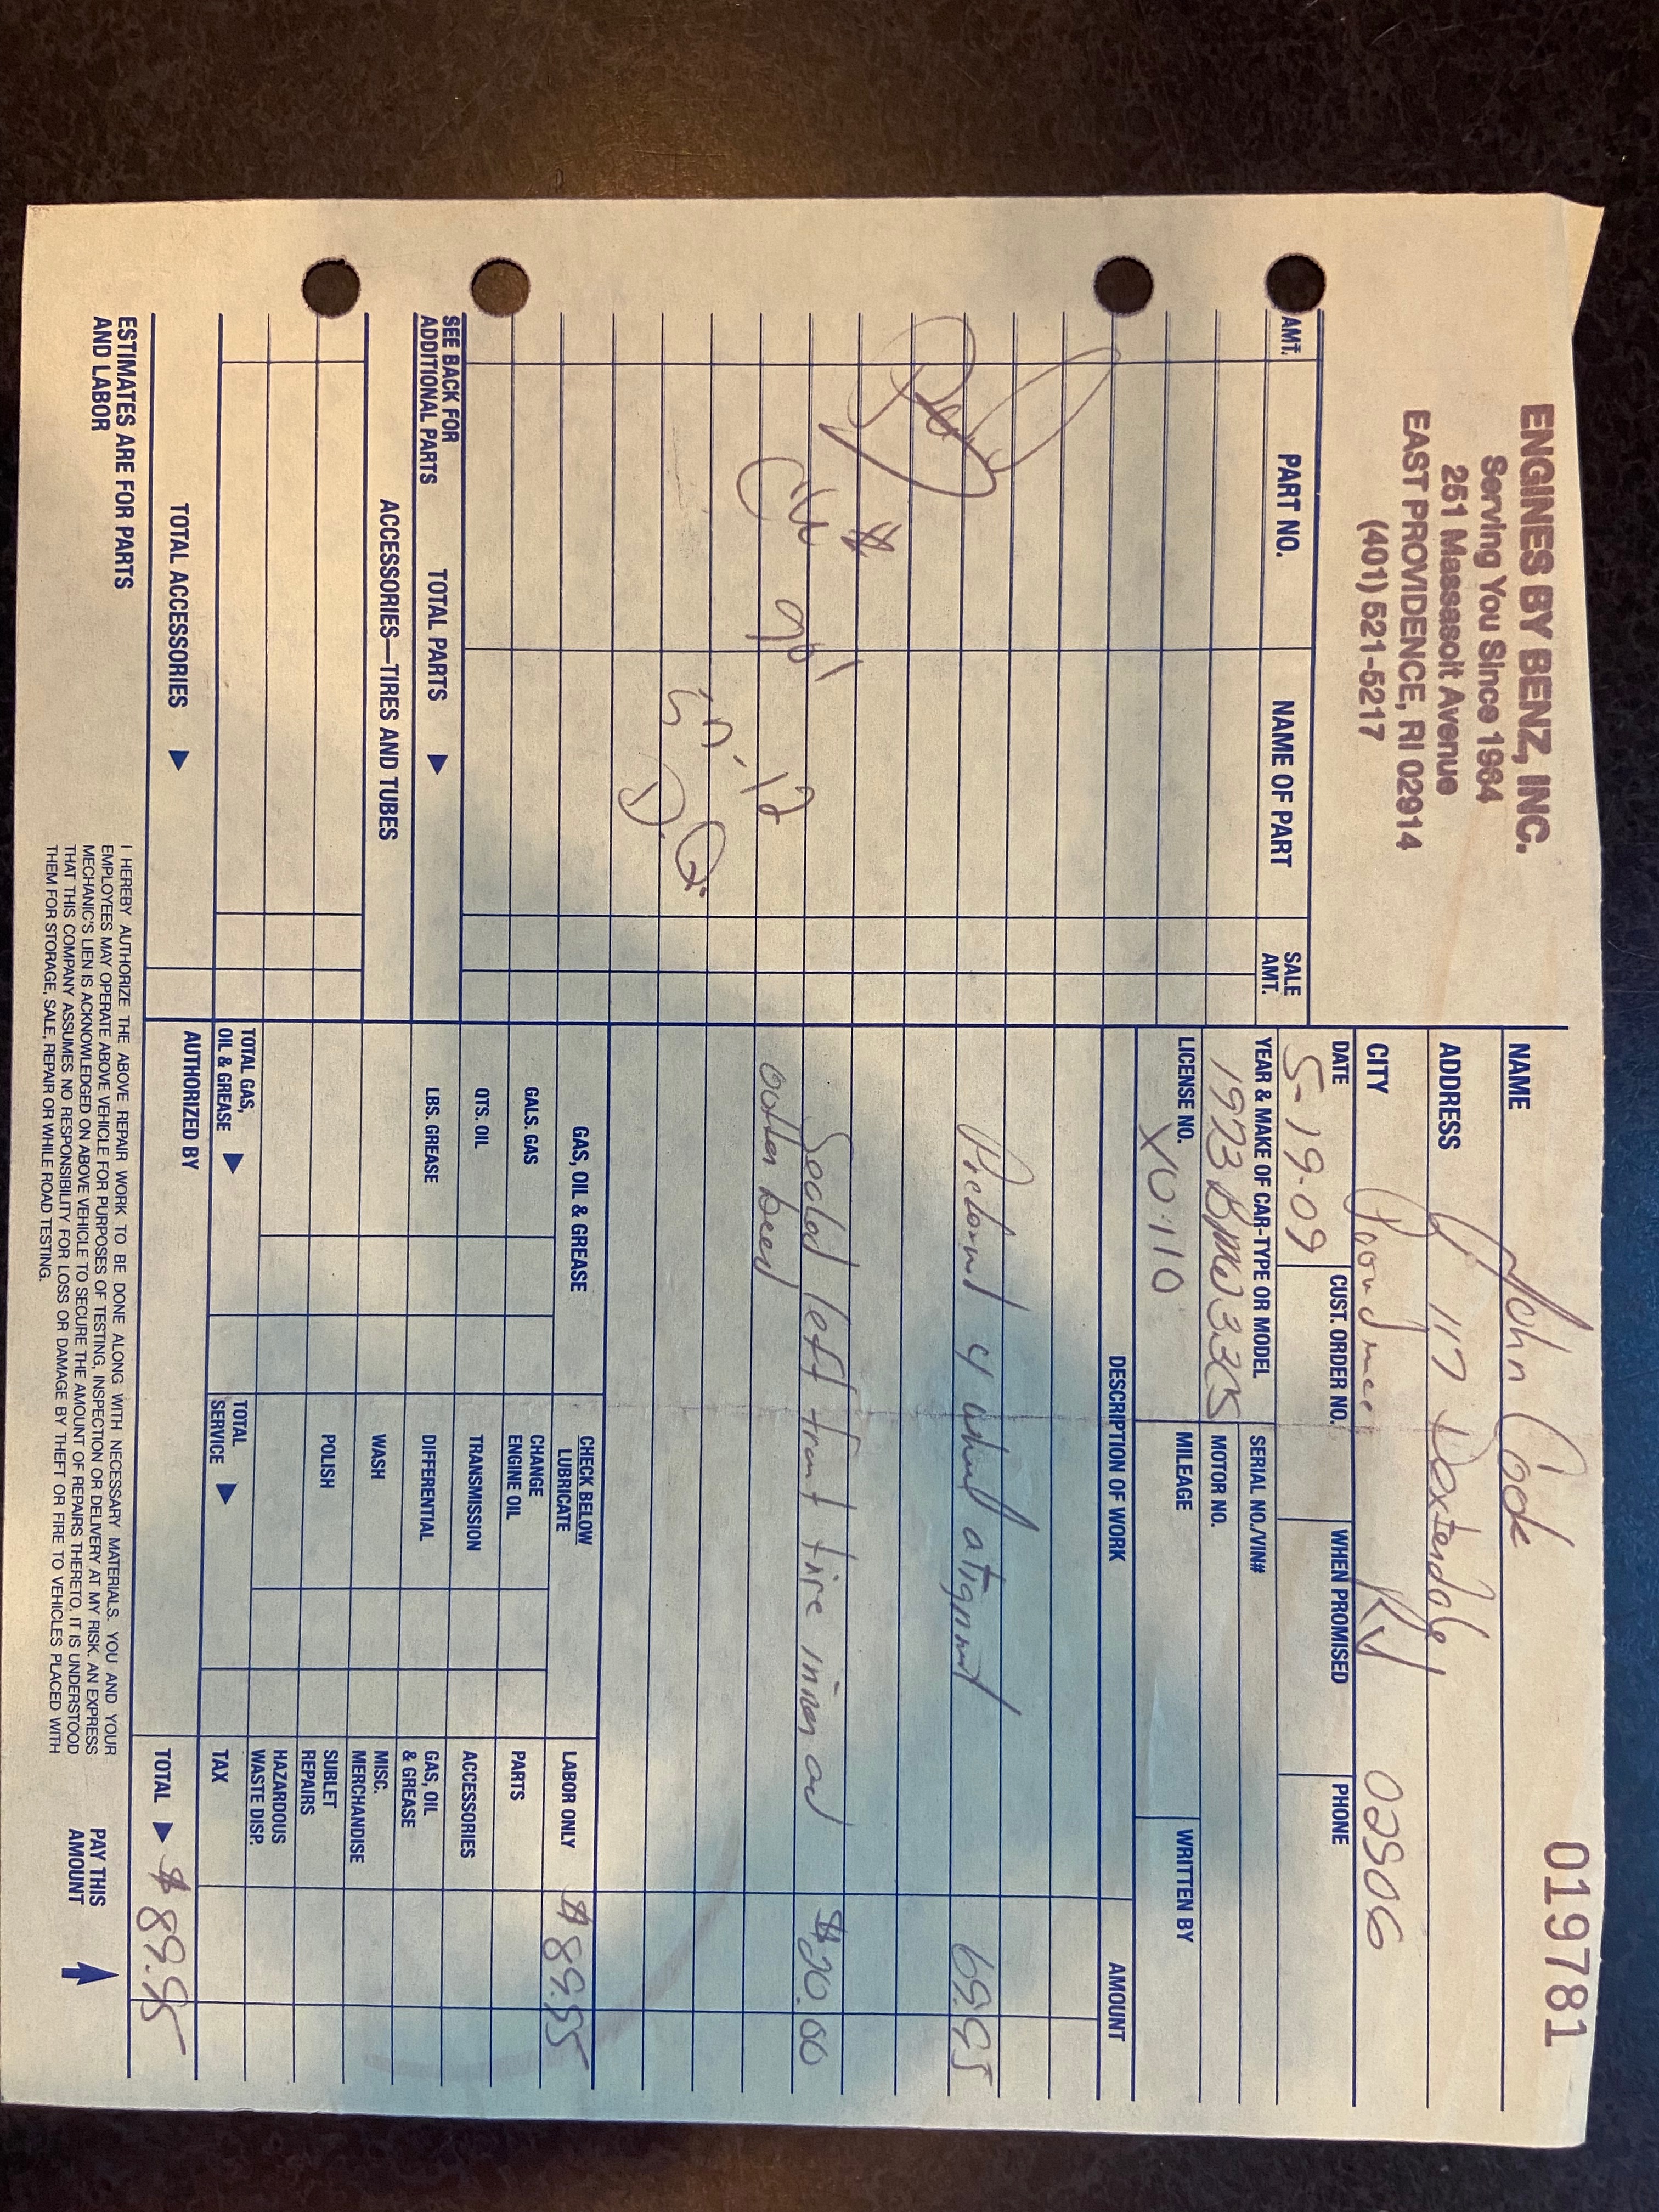 ENGINES BY BENZ, INC.
Serving You Since 1984
251 Massasoit Avenue
EAST PROVIDENCE, RI 02914
(401) 521-5217
019781
NAME John
ADDRESS 117 Dexterdale
CITY RI 02906
DATE CUST. ORDER NO. WHEN PROMISED PHONE
5-19-09
YEAR & MAKE OF CAR-TYPE OR MODEL SERIAL NO./VIN#
1973 BMW MOTOR NO.
LICENSE NO. MILEAGE WRITTEN BY
XO-110
AMT. PART NO. NAME OF PART SALE AMT.
DESCRIPTION OF WORK AMOUNT
4 wheel 69.95
Sealed left front tire inner $20.00
Paid
$
901
D.Q.
SEE BACK FOR ADDITIONAL PARTS TOTAL PARTS
ACCESSORIES—TIRES AND TUBES
TOTAL ACCESSORIES
ESTIMATES ARE FOR PARTS
AND LABOR
GAS, OIL & GREASE
GALS. GAS
QTS. OIL
LBS. GREASE
TOTAL GAS, OIL & GREASE
CHECK BELOW
LUBRICATE
CHANGE ENGINE OIL
TRANSMISSION
DIFFERENTIAL
WASH
POLISH
TOTAL SERVICE
LABOR ONLY $89.95
PARTS
ACCESSORIES
GAS, OIL & GREASE
MISC. MERCHANDISE
SUBLET REPAIRS
HAZARDOUS WASTE DISP.
TAX
AUTHORIZED BY
TOTAL $89.95
I HEREBY AUTHORIZE THE ABOVE REPAIR WORK TO BE DONE ALONG WITH NECESSARY MATERIALS. YOU AND YOUR
EMPLOYEES MAY OPERATE ABOVE VEHICLE FOR PURPOSES OF TESTING, INSPECTION OR DELIVERY AT MY RISK. AN EXPRESS
MECHANIC'S LIEN IS ACKNOWLEDGED ON ABOVE VEHICLE TO SECURE THE AMOUNT OF REPAIRS THERETO. IT IS UNDERSTOOD
THAT THIS COMPANY ASSUMES NO RESPONSIBILITY FOR LOSS OR DAMAGE BY THEFT OR FIRE TO VEHICLES PLACED WITH
THEM FOR STORAGE, SALE, REPAIR OR WHILE ROAD TESTING.
PAY THIS
AMOUNT